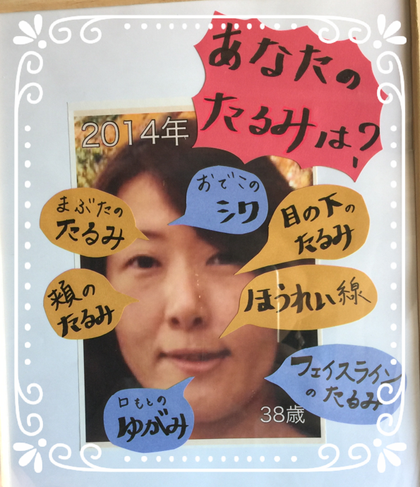 あなたの
たるみは?
2014年
おでこの
シワ
まぶたの
たるみ
目の下の
たるみ
頬の
たるみ
ほうれい線
フェイスライン
のたるみ
口もとの
ゆがみ
38歳